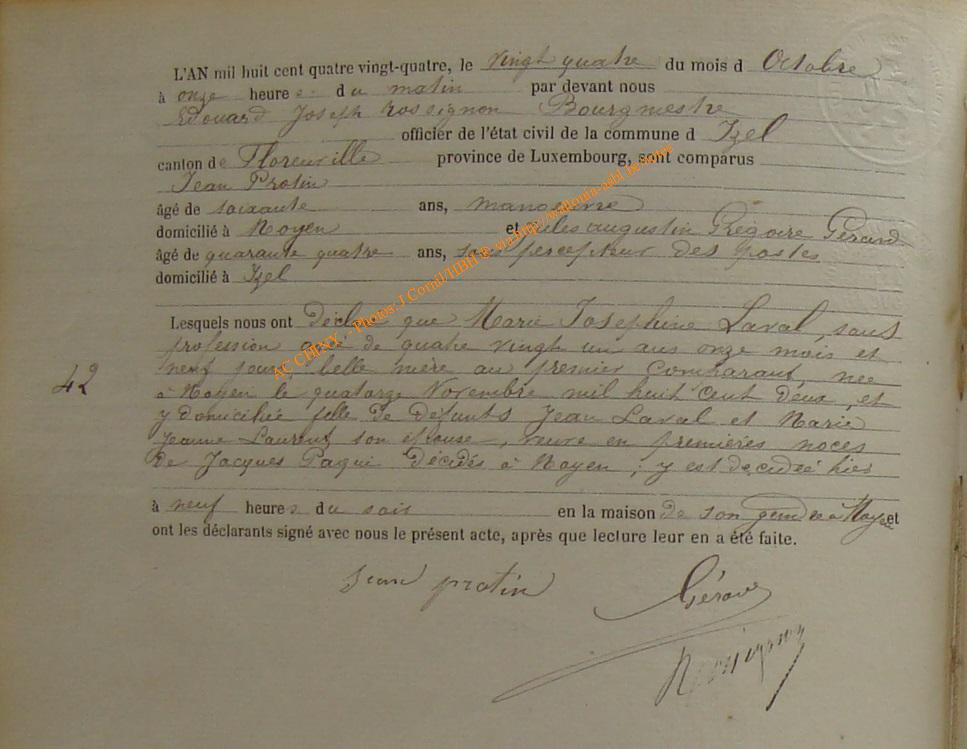 L'AN mil huit cent quatre vingt-quatre, le vingt quatre du mois d Octobre
à onze heures du matin par devant nous
Edouard Joseph Rossignon Bourgmestre
officier de l'état civil de la commune d Izel
canton de Florenville province de Luxembourg, sont comparus
Jean Protin
âgé de soixante ans, manoeuvre
domicilié à Moyen et Jules augustin Grégoire Gérard
âgé de quarante quatre ans, sous percepteur des postes
domicilié à Izel
Lesquels nous ont déclaré que Marie Josephine Laval, sans
profession agée de quatre vingt un ans onze mois et
neuf jours, belle mère au premier comparant, née
42
à Moyen le quatorze Novembre mil huit cent deux, et
y domiciliée fille de défunts Jean Laval et Marie
Jeanne Laurent son épouse, veuve en premières noces
de Jacques Paqui décidés à Moyen ; y est decidée hier
à neuf heures du soir en la maison de son gendre à Moyen et
ont les déclarants signé avec nous le présent acte, après que lecture leur en a été faite.
Jean protin
Gérard
Rossignon
AC CHINY - Photos: J Cornil/HBH @ via http://wallonia-asbl.be/